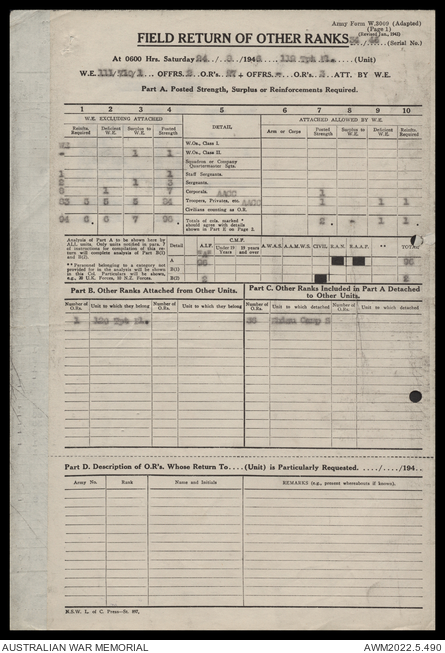 Army Form W.3009 (Adapted)
(Page 1)
(Revised Jan., 1942)
FIELD RETURN OF OTHER RANKS
(Serial No.)
At 0600 Hrs. Saturday 24../.../194.. 132 Tpt Pl....(Unit)
W.E. 111/ OFFRS. O.R's. + OFFRS. O.R's. ATT. BY W.E.
Part A. Posted Strength, Surplus or Reinforcements Required.
1 2 3 4 5 6 7 8 9 10
W.E. EXCLUDING ATTACHED DETAIL ATTACHED ALLOWED BY W.E.
Reinfts. Required Deficient W.E. Surplus to W.E. Posted Strength Arm or Corps Posted Strength Surplus to W.E. Deficient W.E. Reinfts. Required
W.Os., Class I.
1 1 W.Os., Class II.
Squadron or Company Quartermaster Sgts.
1 1 Staff Sergeants.
2 1 3 Sergeants.
1 7 Corporals. AACC 1
5 5 84 Troopers, Privates, etc. AACC 1 1 1
Civilians counting as O.R.
94 6 7 96 Totals of cols. marked * should agree with details shown in Part E on Page 2. 2 1 1
Analysis of Part A to be shown here by ALL units. Only units notified to para. 7 of instructions for completion of this return will complete analysis of Part B(1) and B(2).
**Personnel belonging to a category not provided for in the analysis will be shown in this Col. Particulars will be shown, e.g., 20 U.K. Forces, 10 N.Z. Forces.
Detail A.I.F. C.M.F. Under 19 Years 19 years and over A.W.A.S. A.A.M.W.S. CIVIL. R.A.N. R.A.A.F. ** TOTAL
A 96 96
B(1)
B(2) 2 2
Part B. Other Ranks Attached from Other Units.
Part C. Other Ranks Included in Part A Detached to Other Units.
Number of O.Rs. Unit to which they belong Number of O.Rs. Unit to which they belong Number of O.Rs. Unit to which detached Number of O.Rs. Unit to which detached
1 Tpt Pl. Camp
Part D. Description of O.R's. Whose Return To....(Unit) is Particularly Requested...../...../194..
Army No. Rank Name and Initials REMARKS (e.g., present whereabouts if known).
N.S.W. L. of C. Press—St. 897.
AUSTRALIAN WAR MEMORIAL
AWM2022.5.490